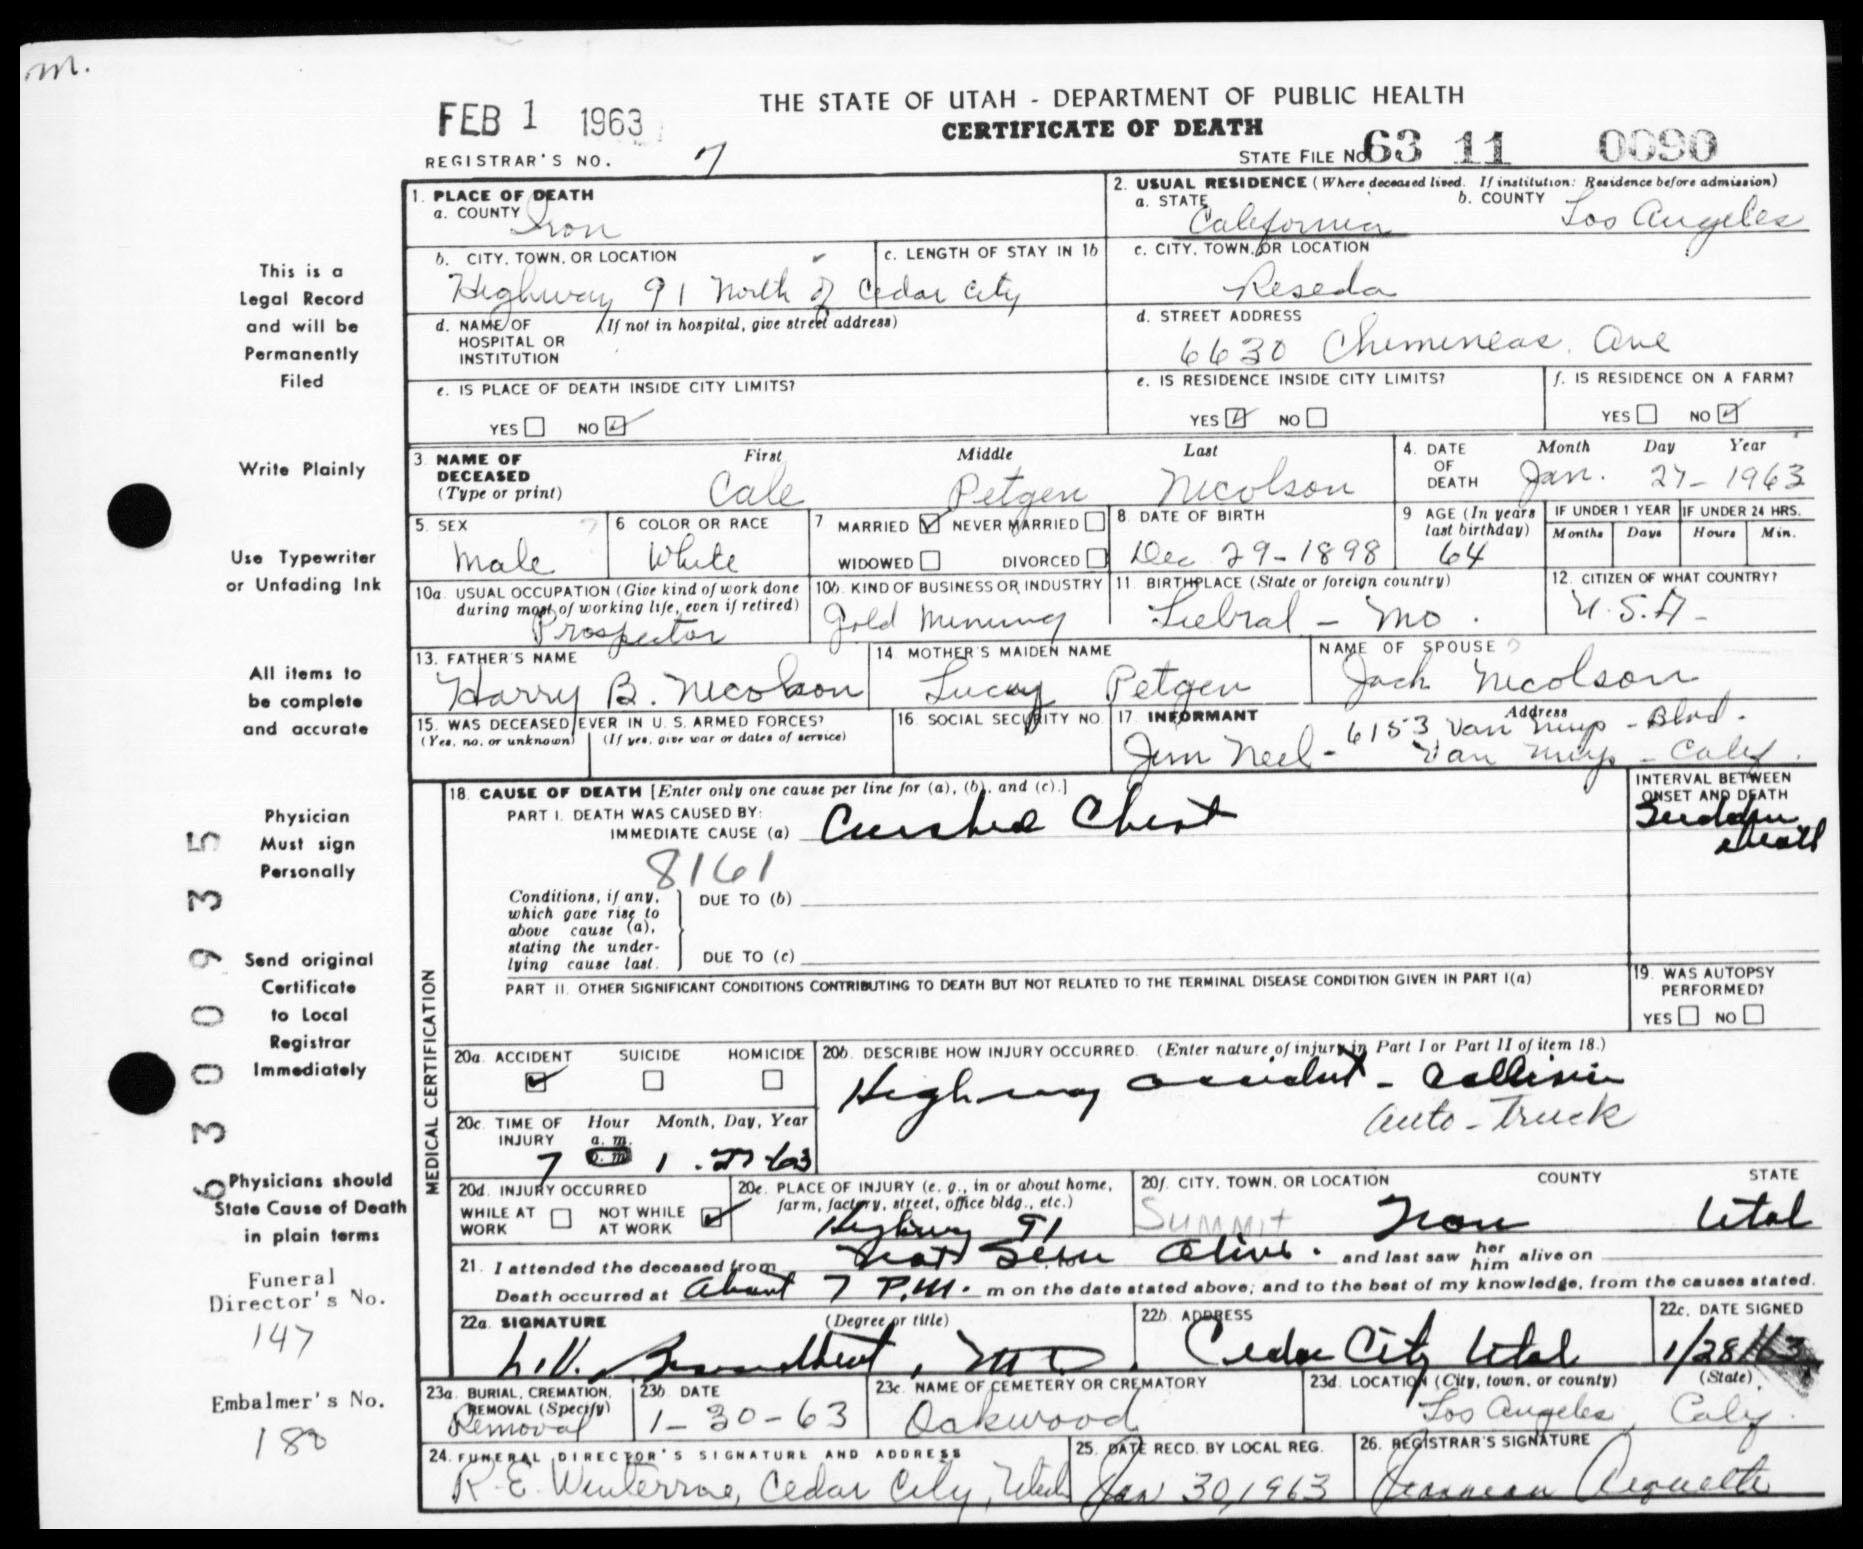 m.
FEB 1 1963
THE STATE OF UTAH - DEPARTMENT OF PUBLIC HEALTH
CERTIFICATE OF DEATH
REGISTRAR'S NO. 7
STATE FILE NO. 63 11 0090
1. PLACE OF DEATH
a. COUNTY Iron
2. USUAL RESIDENCE (Where deceased lived. If institution: Residence before admission)
a. STATE California b. COUNTY Los Angeles
b. CITY, TOWN, OR LOCATION c. LENGTH OF STAY IN 1b
Highway 91 North of Cedar City
c. CITY, TOWN, OR LOCATION
Reseda
d. NAME OF HOSPITAL OR INSTITUTION (If not in hospital, give street address)
d. STREET ADDRESS
6630 Chimineas Ave
e. IS PLACE OF DEATH INSIDE CITY LIMITS?
YES NO ✓
e. IS RESIDENCE INSIDE CITY LIMITS?
YES ✓ NO
f. IS RESIDENCE ON A FARM?
YES NO ✓
3. NAME OF DECEASED (Type or print)
First Middle Last
Cale Petgen Nicolson
4. DATE OF DEATH Month Day Year
Jan. 27-1963
5. SEX
Male
6. COLOR OR RACE
White
7. MARRIED ✓ NEVER MARRIED
WIDOWED DIVORCED
8. DATE OF BIRTH
Dec 29-1898
9. AGE (In years last birthday)
64
IF UNDER 1 YEAR IF UNDER 24 HRS.
Months Days Hours Min.
10a. USUAL OCCUPATION (Give kind of work done during most of working life, even if retired)
Prospector
10b. KIND OF BUSINESS OR INDUSTRY
Gold Mining
11. BIRTHPLACE (State or foreign country)
Liebral - Mo.
12. CITIZEN OF WHAT COUNTRY?
U.S.A-
13. FATHER'S NAME
Harry B. Nicolson
14. MOTHER'S MAIDEN NAME
Lucy Petgen
NAME OF SPOUSE
Jack Nicolson
15. WAS DECEASED EVER IN U. S. ARMED FORCES?
(Yes, no, or unknown) (If yes, give war or dates of service)
16. SOCIAL SECURITY NO.
17. INFORMANT Address
Jim Neel - 6153 Van Nuys - Blvd.
Van Nuys - Calif.
MEDICAL CERTIFICATION
18. CAUSE OF DEATH [Enter only one cause per line for (a), (b), and (c).]
PART I. DEATH WAS CAUSED BY:
IMMEDIATE CAUSE (a) Crushed Chest
8161
INTERVAL BETWEEN ONSET AND DEATH
Sudden death
Conditions, if any, which gave rise to above cause (a), stating the underlying cause last.
DUE TO (b)
DUE TO (c)
PART II. OTHER SIGNIFICANT CONDITIONS CONTRIBUTING TO DEATH BUT NOT RELATED TO THE TERMINAL DISEASE CONDITION GIVEN IN PART I(a)
19. WAS AUTOPSY PERFORMED?
YES NO
20a. ACCIDENT ✓ SUICIDE HOMICIDE
20b. DESCRIBE HOW INJURY OCCURRED. (Enter nature of injury in Part I or Part II of item 18.)
Highway accident - Collision
Auto - Truck
20c. TIME OF INJURY Hour a. m. p. m. Month, Day, Year
7 1-27-63
20d. INJURY OCCURRED
WHILE AT WORK NOT WHILE AT WORK ✓
20e. PLACE OF INJURY (e. g., in or about home, farm, factory, street, office bldg., etc.)
Highway 91
20f. CITY, TOWN, OR LOCATION COUNTY STATE
SUMMIT Iron Utah
21. I attended the deceased from Not Seen Alive. and last saw her him alive on
Death occurred at About 7 P.M. m on the date stated above; and to the best of my knowledge, from the causes stated.
22a. SIGNATURE (Degree or title)
MD.
22b. ADDRESS
Cedar City Utah
22c. DATE SIGNED
1/28/63
23a. BURIAL, CREMATION, REMOVAL (Specify)
Removal
23b. DATE
1-30-63
23c. NAME OF CEMETERY OR CREMATORY
Oakwood
23d. LOCATION (City, town, or county) (State)
Los Angeles, Calif.
24. FUNERAL DIRECTOR'S SIGNATURE AND ADDRESS
R.E. Winterrose, Cedar City, Utah
25. DATE RECD. BY LOCAL REG.
Jan 30, 1963
26. REGISTRAR'S SIGNATURE
This is a
Legal Record
and will be
Permanently
Filed
Write Plainly
Use Typewriter
or Unfading Ink
All items to
be complete
and accurate
Physician
Must sign
Personally
Send original
Certificate
to Local
Registrar
Immediately
Physicians should
State Cause of Death
in plain terms
Funeral
Director's No.
147
Embalmer's No.
180
6300935